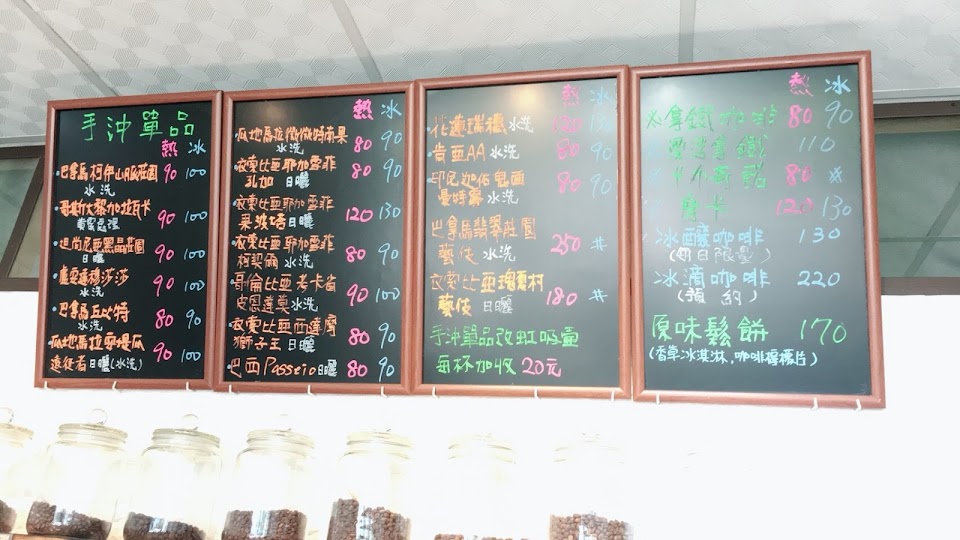 手沖單品
熱 冰
巴拿馬柯伊山脈莊園 90 100
水洗
哥斯大黎加拉瓦卡 90 100
坦尚尼亞黑晶莊園 90 100
日曬
盧安達穆莎莎 90 100
水洗
巴拿馬丘比特 80 90
水洗
瓜地馬拉
遠征者 日曬(水洗) 90 100
熱 冰
瓜地馬拉微微特南果 80 90
水洗
衣索比亞耶加雪菲 80 90
孔加 日曬
衣索比亞耶加雪菲 120 130
果波塔日曬
衣索比亞耶加雪菲 80 90
柯契爾 水洗
哥倫比亞考卡省 90 100
皮恩達莫水洗
衣索比亞西達摩 80 90
獅子王 日曬
巴西Passeio日曬 80 90
熱 冰
花蓮瑞穗水洗 120 130
肯亞AA 水洗 80 90
印尼迦佑鬼面 80 90
曼特寧 水洗
巴拿馬翡翠莊園 250 #
藝伎 水洗
衣索比亞瑰夏村 180 #
藝伎 日曬
手沖單品改虹吸壺
每杯加收20元
熱 冰
拿鐵咖啡 80 90
110
80 ※
摩卡 120 130
冰釀咖啡 130
(每日限量)
冰滴咖啡 220
(預約)
原味鬆餅 170
(香草冰淇淋,咖啡核桃片)